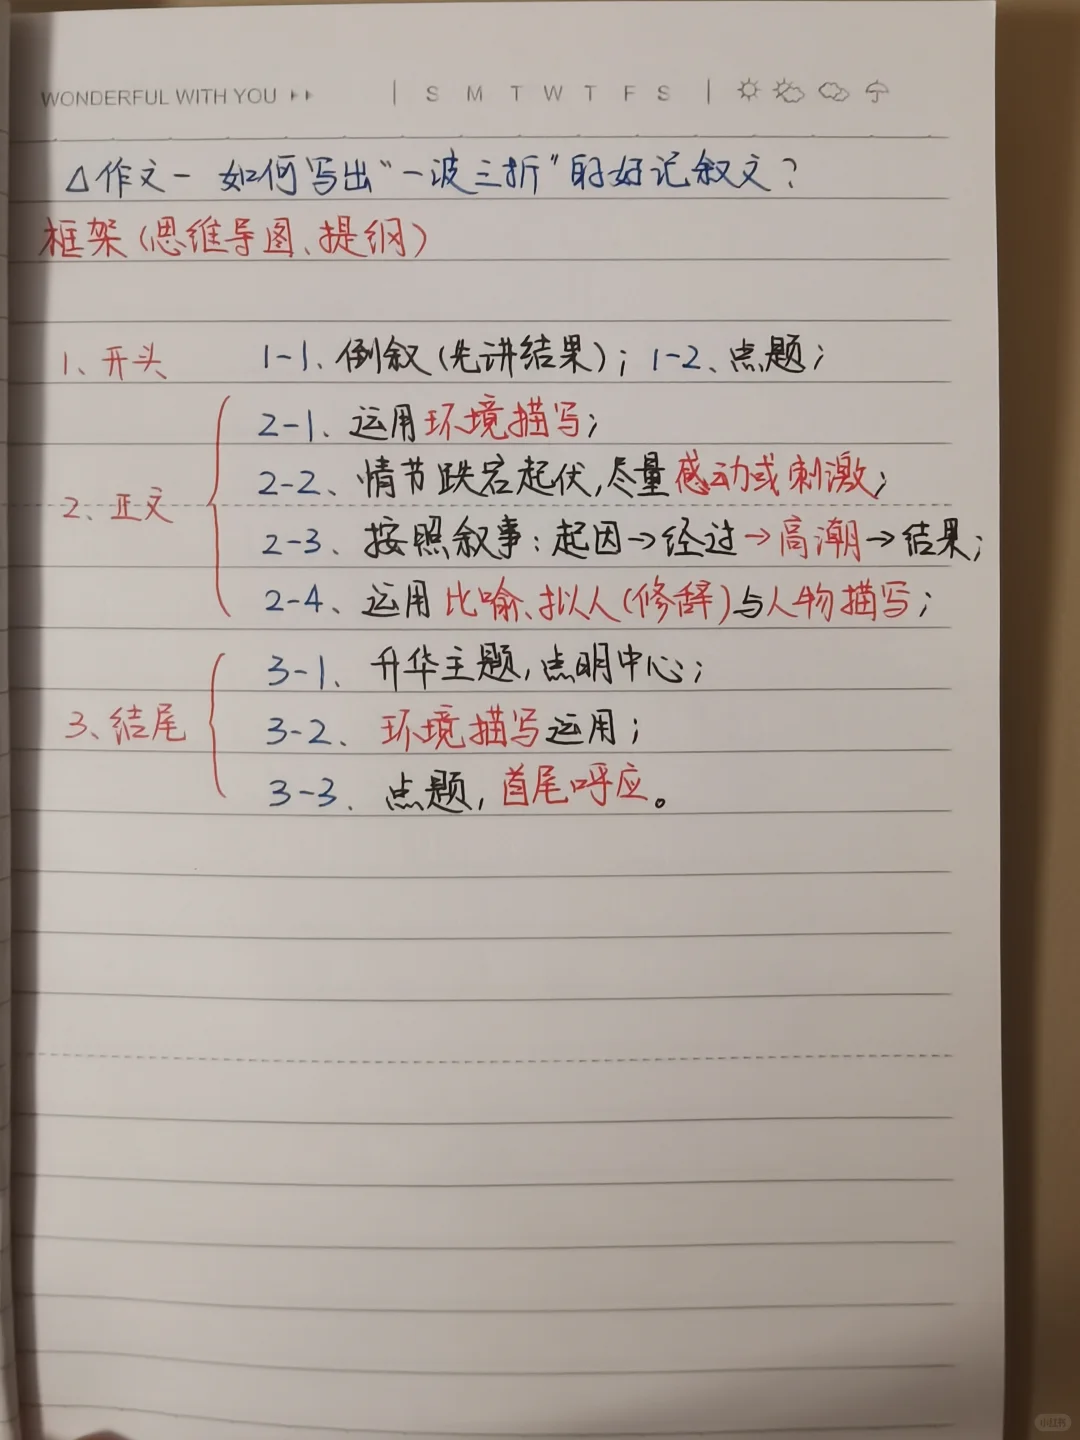 WONDERFUL WITH YOU | S M T W T F S |
△作文一 如何写出“一波三折”的好记叙文?
框架(思维导图、提纲)
1、开头 1-1、倒叙(先讲结果); 1-2、点题;
2-1、运用环境描写;
2-2、情节跌宕起伏,尽量感动或刺激;
2、正文
2-3、按照叙事:起因→经过→高潮→结果;
2-4、运用比喻、拟人(修辞)与人物描写;
3-1、升华主题,点明中心;
3、结尾 3-2、环境描写运用;
3-3、点题,首尾呼应。
小红书